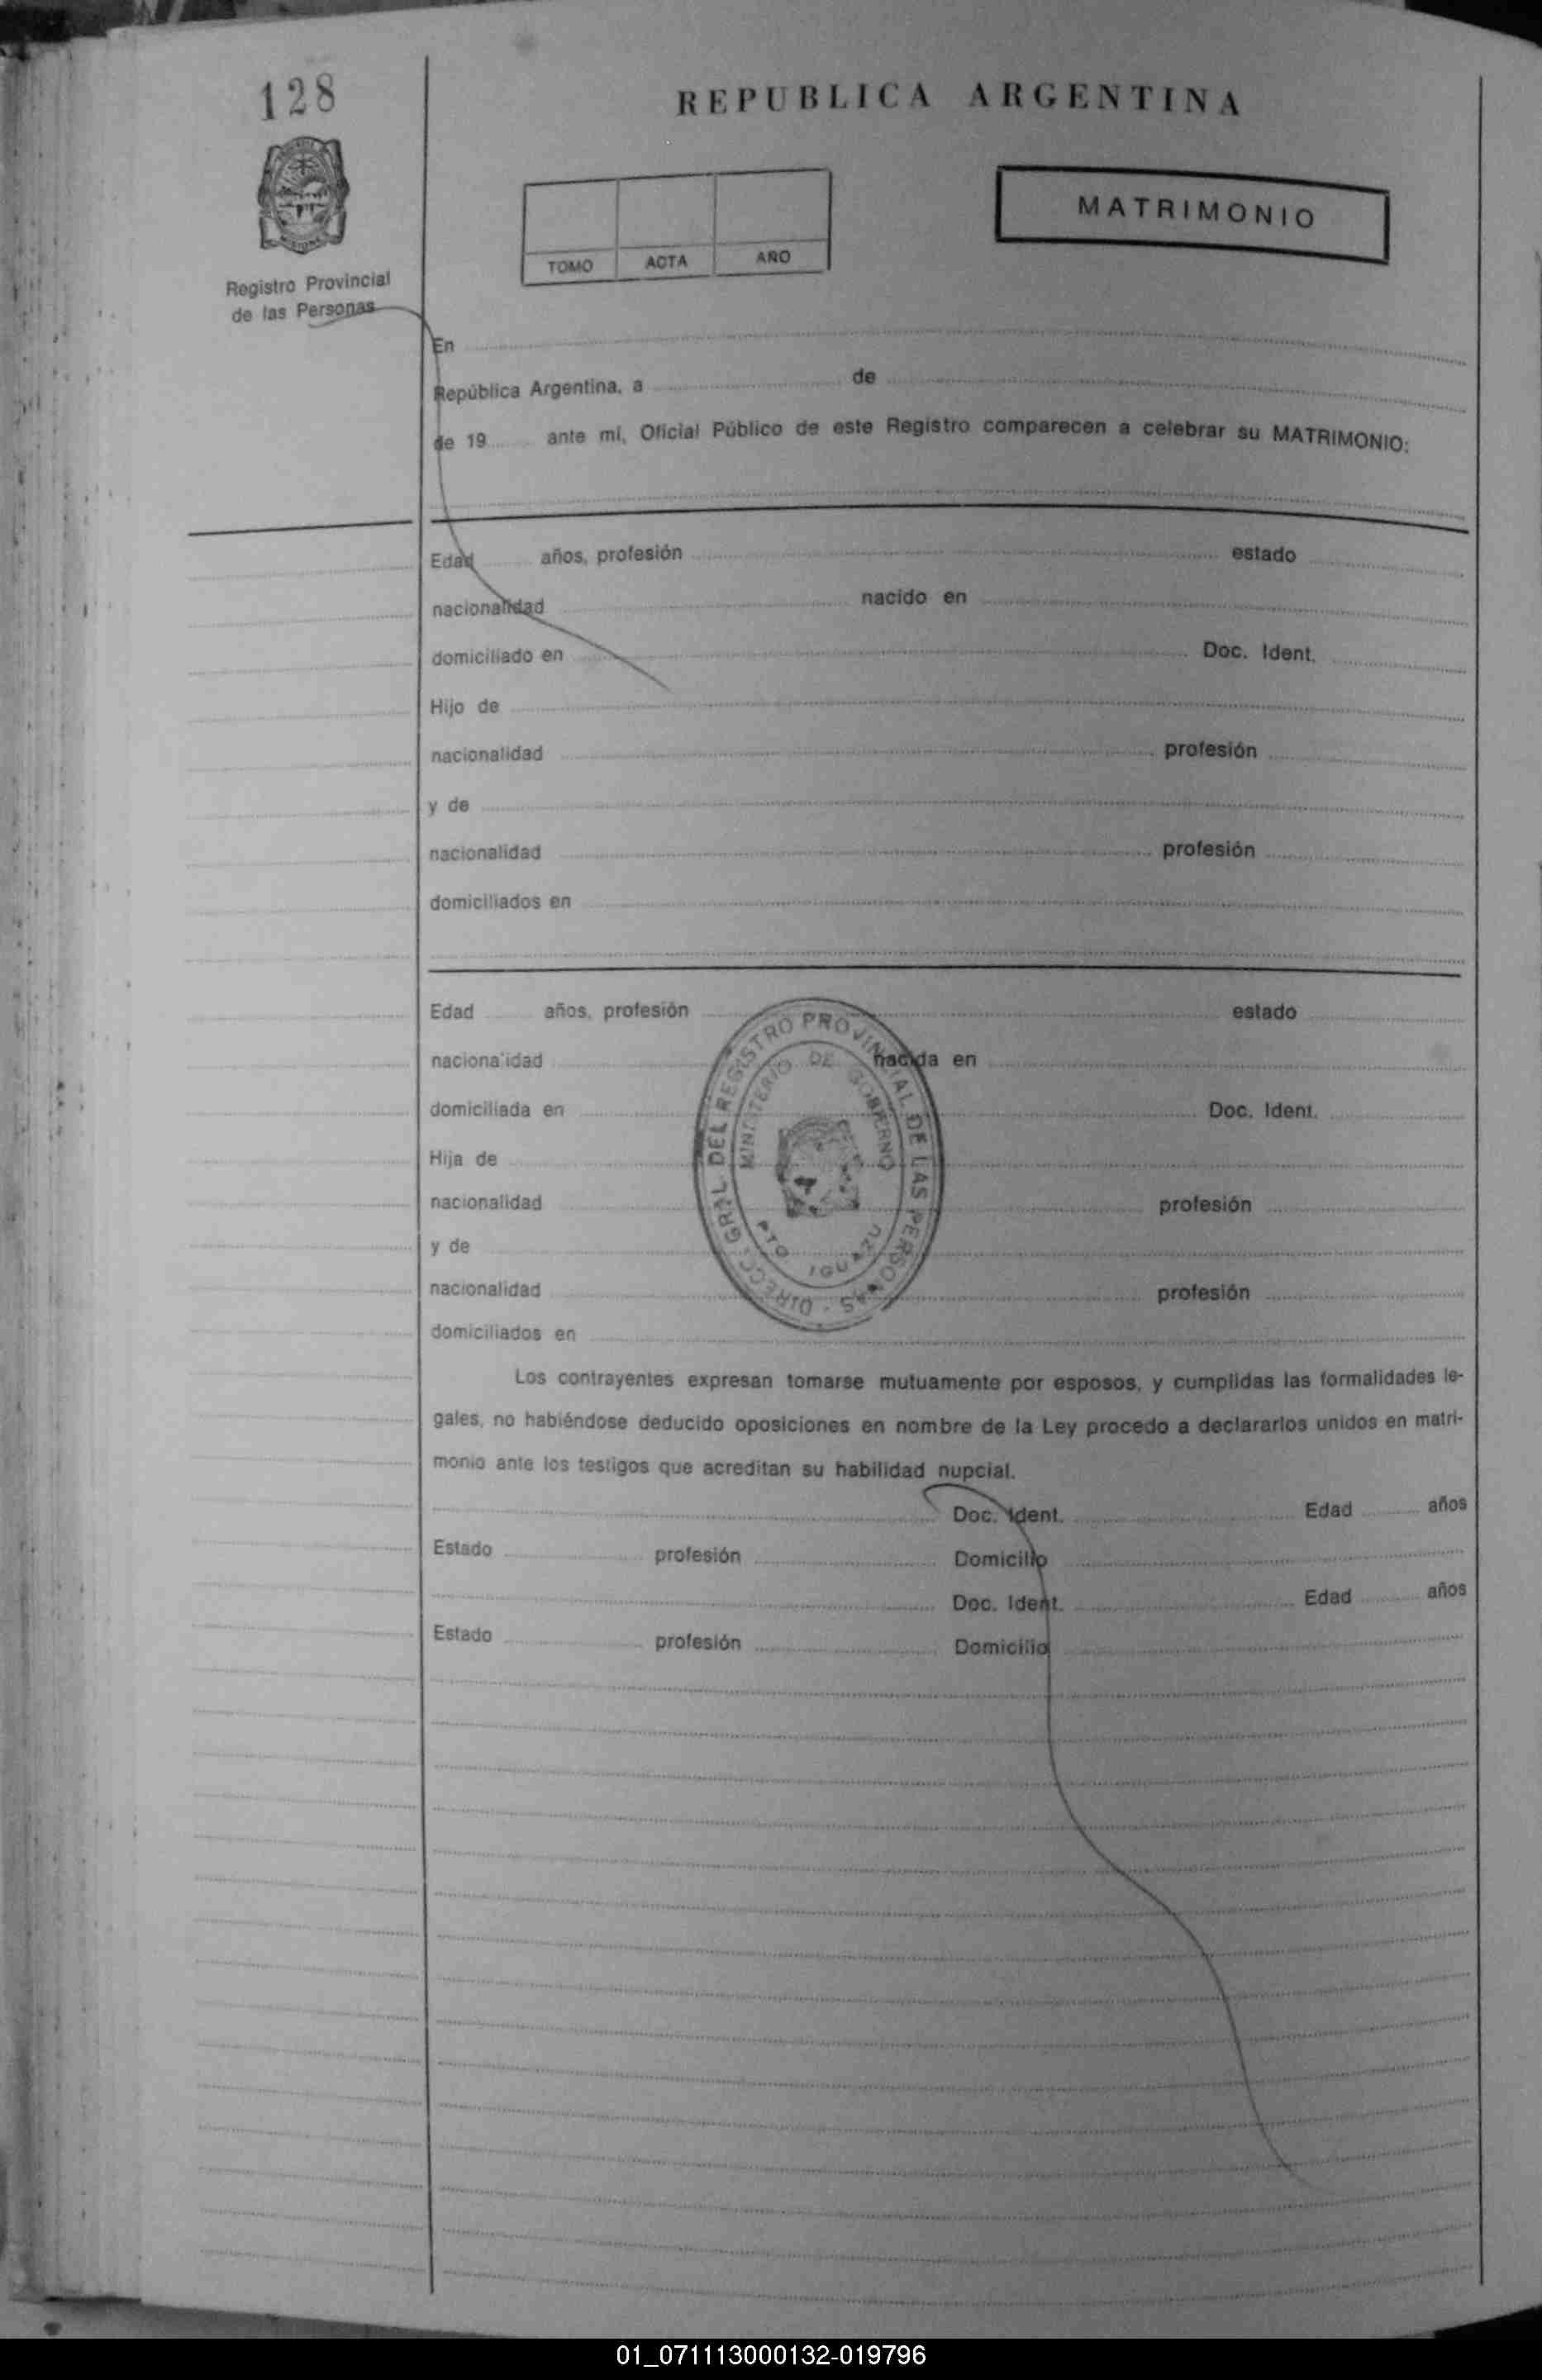 128
REPUBLICA ARGENTINA
MATRIMONIO
TOMO ACTA AÑO
Registro Provincial
de las Personas
En
República Argentina, a de
de 19 ante mí, Oficial Público de este Registro comparecen a celebrar su MATRIMONIO:
Edad años, profesión estado
nacionalidad nacido en
domiciliado en Doc. Ident.
Hijo de
nacionalidad profesión
y de
nacionalidad profesión
domiciliados en
Edad años, profesión estado
nacionalidad nacida en
domiciliada en Doc. Ident.
Hija de
nacionalidad profesión
y de
nacionalidad profesión
domiciliados en
DIRECC. GRAL. DEL REGISTRO PROVINCIAL DE LAS PERSONAS
MINISTERIO DE GOBIERNO
PTO. IGUAZU
Los contrayentes expresan tomarse mutuamente por esposos, y cumplidas las formalidades le-
gales, no habiéndose deducido oposiciones en nombre de la Ley procedo a declararlos unidos en matri-
monio ante los testigos que acreditan su habilidad nupcial.
Doc. Ident. Edad años
Estado profesión Domicilio
Doc. Ident. Edad años
Estado profesión Domicilio
01_071113000132-019796